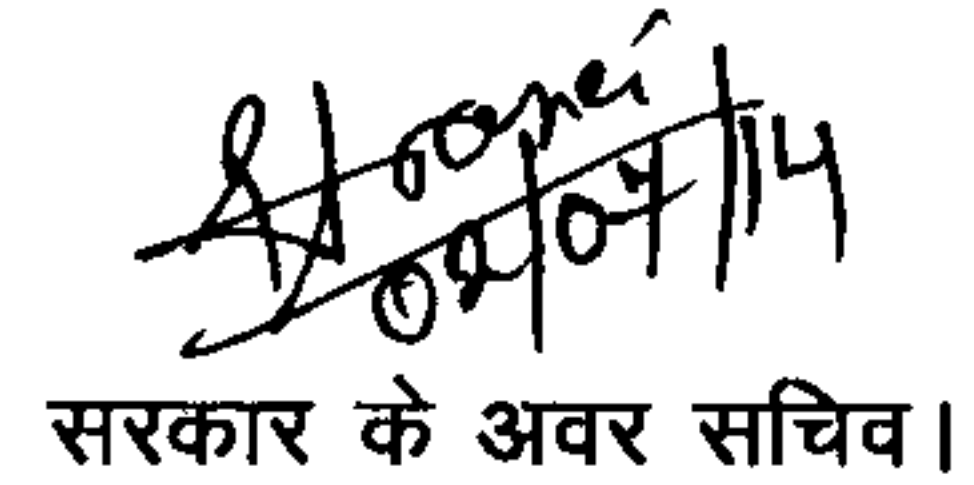 02/07/14
सरकार के अवर सचिव।